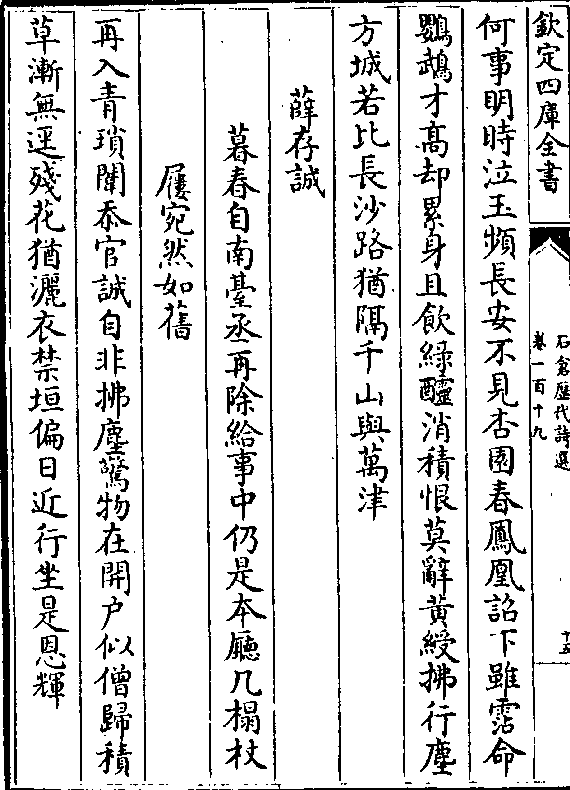 欽定四庫全書
石倉歷代詩選
卷一百十九
十五
何事明時泣玉頻長安不見杏園春鳳凰詔下雖霑命
鸚鵡才高却累身且飲綠醽消積恨莫辭黃綬拂行塵
方城若比長沙路猶隔千山與萬津
薛存誠
暮春自南臺丞再除給事中仍是本廳几榻杖
屨宛然如舊
再入青瑣闈忝官誠自非拂塵驚物在開户似僧歸積
草漸無逕殘花猶灑衣禁垣偏日近行坐是恩輝